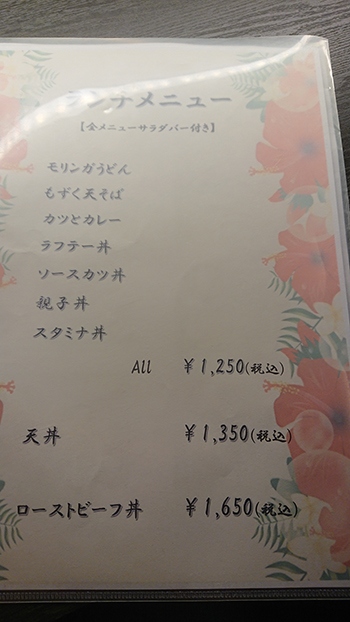 ランチメニュー
【全メニューサラダバー付き】
モリンガうどん
もずく天そば
カツとカレー
ラフテー丼
ソースカツ丼
親子丼
スタミナ丼
All ￥1,250(税込)
天丼 ￥1,350(税込)
ローストビーフ丼 ￥1,650(税込)